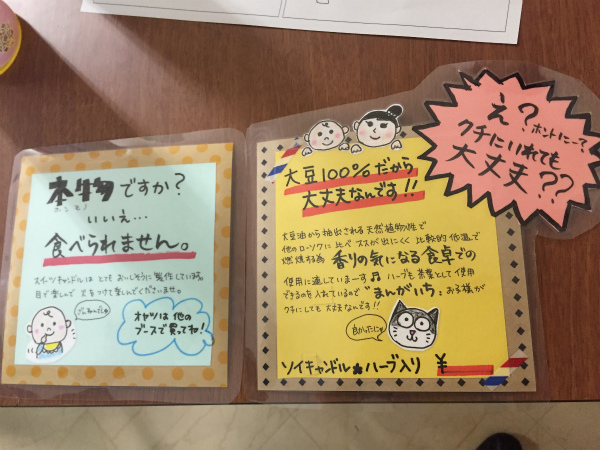 本物ですか?
ホンモノ
いいえ…
食べられません。
スイーツキャンドルは とても おいしそうに 製作しています。
目で楽しんで 火をつけて楽しんでくださいませ。
オヤツは他の
ブースで買ってね!
え?ホントにー?
クチにいれても
大丈夫??
大豆100%だから
大丈夫なんです!!
大豆油から抽出される天然植物性で
他のローソクに比べ ススが出にくく 比較的低温で
燃焼する為 香りの気になる食卓での
使用に適していまーす♫ ハーブも 茶葉として使用
できるのを 入れているので "まんがいち" お子様が
クチにしても 大丈夫なんです!!
良かったにゃ
ソイキャンドル ハーブ入り ¥